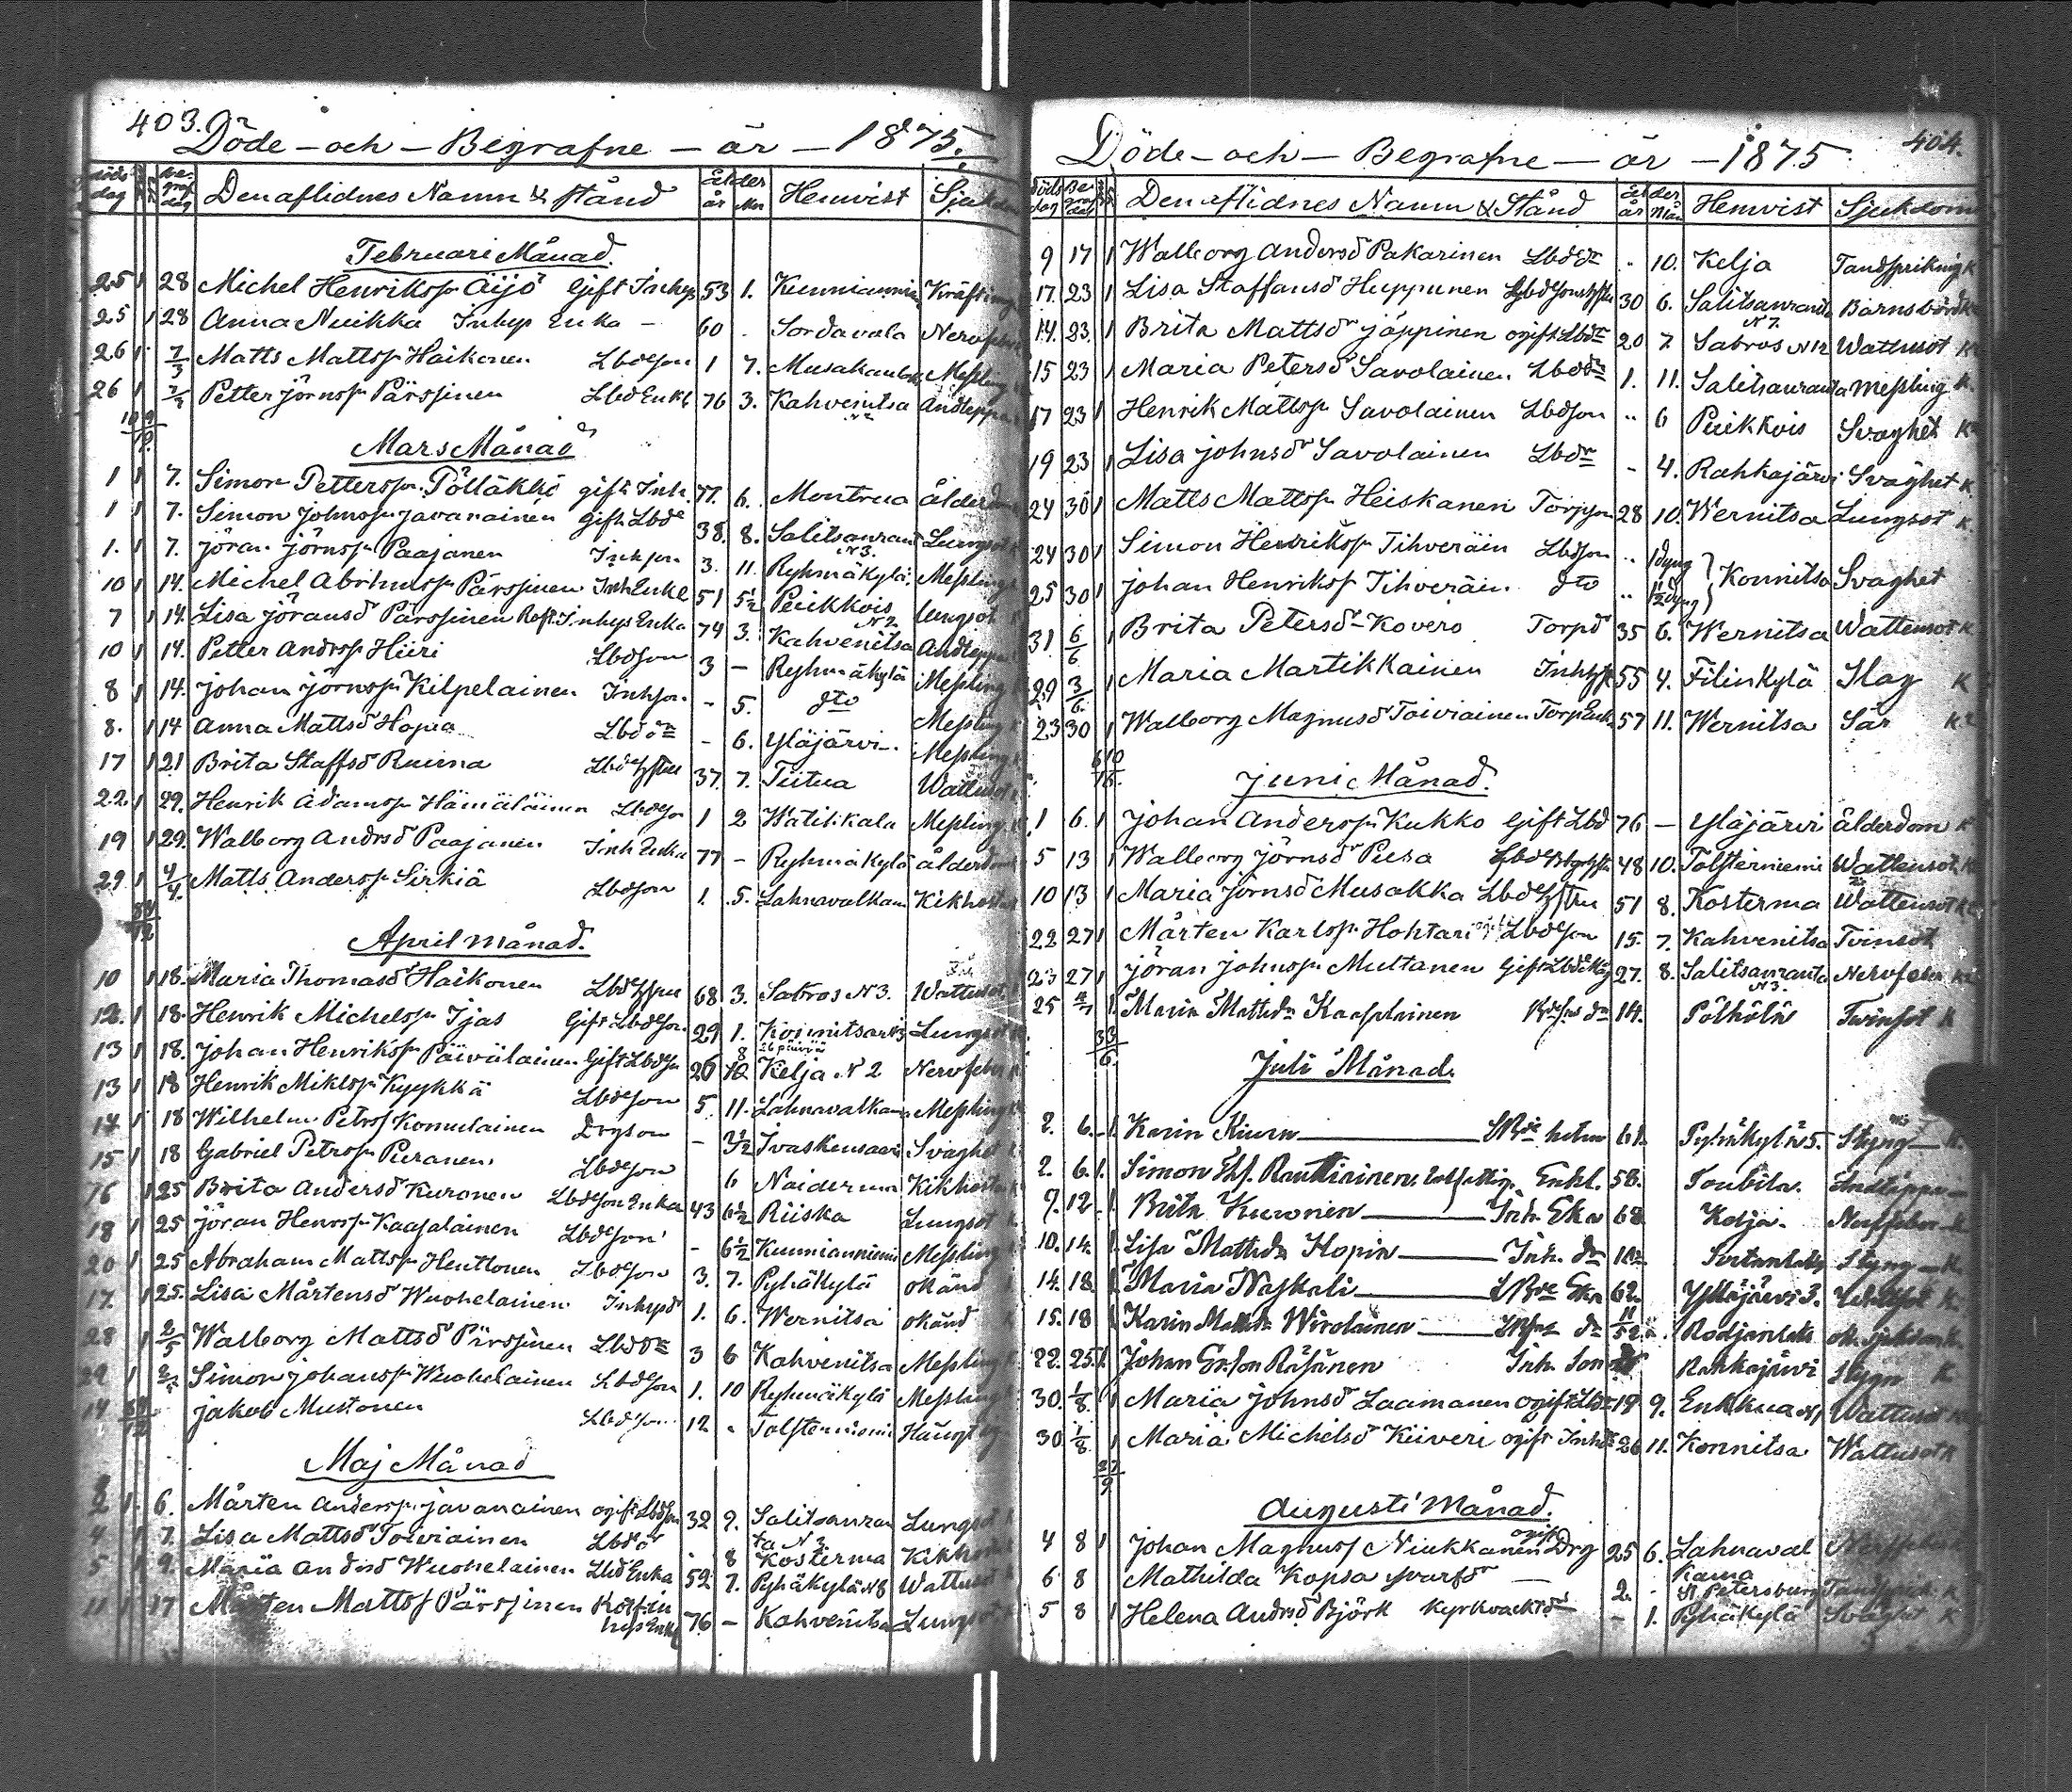 403.
Döde - och - Begrafne - år - 1875.
döds dag Be graf dag Den aflidnes Namn & stånd ålder år Mn Hemvist Sjukdom
Februari Månad.
25 1 28 Michel Henrikss. Äijö Gift Inhys 53 1. Kunnianniemi Kräfting
25 1 28 Anna Nuikka Inhys Enka - 60 . Sordavala Nervfeber
26 1 7/3 Matts Mattss. Haikonen Lbdeson 1 7. Musakanl Messling
26 1 7/3 Petter Jörnss. Pärssinen LbdEnkl 76 3. Kahvenitsa Andtäppa
Mars Månad
1 1 7. Simon Petterss. Pölläkkö gift Inh. 77. 6. Montrua ålderdom
1 1 7. Simon Johnss. Javanainen gift Lbde 38. 8. Salitsanrant N3. Lungsot
1. 1 7. Jöran Jörnss. Paajanen Inhson 3. 11. Ryhmäkylä Messling
10 1 14. Michel Abrhmss. Pärssinen InhEnkl 51 5½ Puikkois Lungsot
7 1 14. Lisa Jöransd Pärssinen Inhys Enka 74 3. Kahvenitsa N2 Andtäppa
10 1 14. Petter Andrss. Hiiri Lbdson 3 - Ryhmäkylä Messling
8 1 14. Johan Jörnss. Kilpelainen Inhson - 5. dto Messling
8. 1 14 Anna Mattsd Hopia Lbddr - 6. Yläjärvi. Messling
17 1 21 Brita Staffsd Ruuna Lbdehstru 37. 7. Tiitua Wattusot
22 1 29. Henrik Adamss. Hämäläinen Lbdeson 1 2 Watikkala Messling
19 1 29. Walborg Andrsd Paajanen Inh Enka 77 - Ryhmäkylä ålderdom
29 1 4/4. Matts Anderss. Sirkiä Lbdson 1. 5. Lahnavalkam Kikhosta
April månad.
10 1 18. Maria Thomasd Haikonen Lbdehstru 68 3. Sabros N3. Wattusot
12. 1 18. Henrik Michelss. Ijas Gift Lbdeson. 29 1. Konnitsa N3 Lungsot
13 1 18. Johan Henrikss. Päiväläinen Gift Lbdson 26 10 Kelja N2 Nervfeber
13 1 18 Henrik Miklss. Kyykkä Lbdeson 5. 11. Lahnavalkam Messling
14 1 18 Wilhelm Petrss Komulainen Drgson - 2½ Ivaskensaari Svaghet
15 1 18 Gabriel Petrss. Puranen Lbdeson 6 Noiderma Kikhosta
16 1 25 Brita Andersd Kuronen Lbdeson Enka 43 6½ Riiska Lungsot
18 1 25 Jöran Henrss. Kaasalainen Lbdeson - 6½ Kunnianniemi Messling
20 1 25 Abraham Mattss. Henttonen Lbdeson 3. 7. Pyhäkylä okänd
17. 1 25. Lisa Mårtensd Wuohelainen Inhysd 1. 6. Wernitsa okänd
28 1 2/5 Walborg Mattsd Pärssinen Lbddr 3 6 Kahvenitsa Messling
29 1 2/5 Simon Johanss. Wuohelainen Lbdson 1. 10 Ryhmäkylä Messling
14 Jakob Mustonen Lbdson 12 . Tolstenniemi
Maj Månad
2 1. 6. Mårten Anderss. Javanainen ogift Lbdson 32 9. Salitsanran ta N3. Lungsot
4 1 7. Lisa Mattsd Toiviainen Lbddr 8 Kosterma Kikhosta
5 1 9. Maria Andrsd Wuohelainen Lbd Enka 52 7. Pyhäkylä N8 Wattusot
11 1 17 Mårten Mattss Pärssinen Rotf. Inhys Enkl 76 - Kahvenitsa Lungsot
404.
Döde - och - Begrafne - år - 1875
döds dag Be graf dag Den aflidnes Namn & Stånd ålder år Mån Hemvist Sjukdom
9 17 1 Walborg Andersd Pakarinen Lbddr . 10. Kelja Tandsprikning K
17. 23 1 Lisa Staffansd Huppunen Lbdesonshstru 30 6. Salitsanranta N7. Barnsbörd K
14. 23. 1 Brita Mattsdr Jäppinen ogift Lbddr 20 7 Sabros N12 Wattusot K
15 23 1 Maria Petersd Savolainen Lbddr 1. 11. Salitsanranta Messling K
17 23 1 Henrik Mattss. Savolainen Lbdson .. 6 Puikkois Svaghet K
19 23 1 Lisa Johnsdr Savolainen Lbdr - 4. Rahkajärvi Svaghet K
24 30 1 Matts Mattss. Heiskanen Torpson 28 10. Wernitsa Lungsot K
24 30 1 Simon Henrikss. Tihveräin Lbdson .. 1 dyng } Konnitsa Svaghet
25 30 1 Johan Henrikss Tihveräin dto .. 1½ dyng
31 6/6 1 Brita Petersd Kovero Torpd 35 6. Wernitsa Wattusot K
29 3/6. 1 Maria Martikkainen Inhhst 55 4. Filinkylä Slag K
23 30 1 Walborg Magnusd Toiviainen Torp Enka 57 11. Wernitsa Sår K
Juni Månad.
1 6. 1 Johan Anderss. Kukko Gift Lbd 76 - Yläjärvi ålderdom K
5 13 1 Walborg Jörnsdr Pusa 48 10. Tolstenniemi Wattensot K
10 13 1 Maria Jörnsd Musakka Lbdehstru 51 8. Kosterma Wattensot K
22 27 1 Mårten Karlss. Hohtari Lbdeson 15. 7. Kahvenitsa Tvinsot
23 27 1 Jöran Johnss. Multanen Gift Lbde Måg 27. 8. Salitsanranta N3. Nervfeber K
25 1. Maria Mattsdr Kaasalainen dr 14. Pölhölä Twinsot K
33/6.
Juli Månad.
2. 6. 1. Karin Kiuru 61. Pyhäkylä N5. Styng K.
2. 6. 1. Simon Rautiainen Enkl. 58. Toubila. Andtäppa
9. 12 1. Brita Kuronen Inh. Eka 68 Kelja. Nerffeber K
10. 14. 1. Lisa Mattsdr Hopia Inh. dr Sortanlaks Styng K.
14. 18. 1. Maria Naskali Eka 62. Ylläjärvi 3. K.
15. 18 1 Karin Mattsdr Wirolainen dr Rodjanlaks
22. 25. 1. Johan Räsänen Inh. Son Rahkajärvi Stygn K
30. 1/8. 1 Maria Johnsd Laamanen ogift Lbdr 19 9. Enkkua N1 Wattusot K
30. 1/8 1 Maria Michelsd Kiiveri ogift Inhd 26 11. Konnitsa Wattusot K
27/9
Augusti Månad.
4 8 1 Johan Magnuss Niukkanen ogift Drg 25 6. Lahnaval kama Nerffeber
6 8 Mathilda Kopsa - 2. . St. Petersburg K
5 8 1 Helena Andrsd Björk Kyrkvaktd - 1. Pyhäkylä Svaghet K